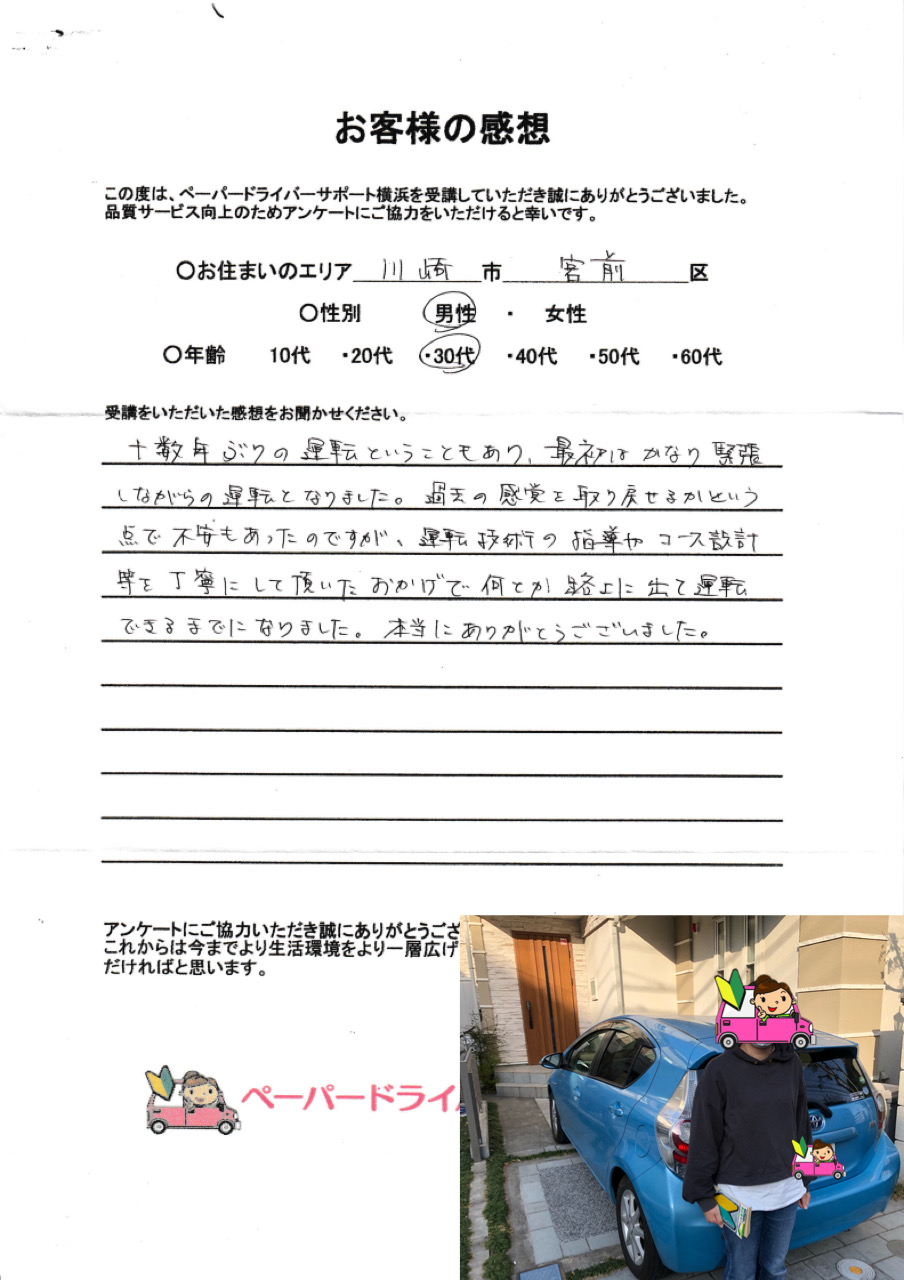 お客様の感想
この度は、ペーパードライバーサポート横浜を受講していただき誠にありがとうございました。
品質サービス向上のためアンケートにご協力をいただけると幸いです。
〇お住まいのエリア 川崎 市 宮前 区
〇性別 男性 ・ 女性
〇年齢 10代 ・20代 ・30代 ・40代 ・50代 ・60代
受講をいただいた感想をお聞かせください。
十数年ぶりの運転ということもあり、最初はかなり緊張
しながらの運転となりました。過去の感覚を取り戻せるかという
点で不安もあったのですが、運転技術の指導やコース設計
等を丁寧にして頂いたおかげで何とか路上に出て運転
できるまでになりました。本当にありがとうございました。
アンケートにご協力いただき誠にありがとうござ
これからは今までより生活環境をより一層広げ
だければと思います。
ペーパードライ